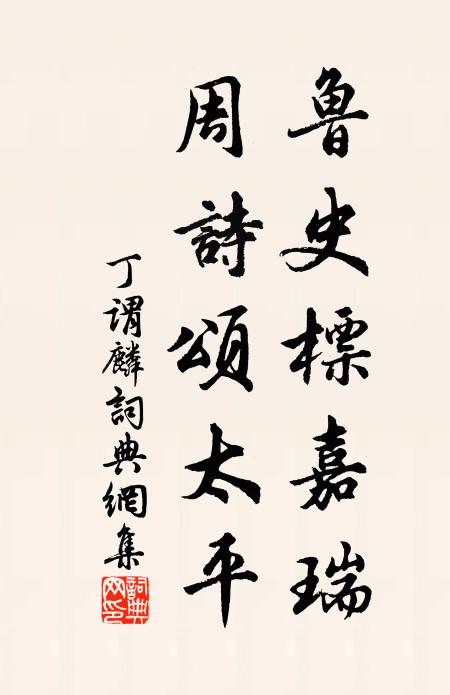 魯史標嘉瑞
周詩頌太平
丁謂麟詞典網集
詞典網印